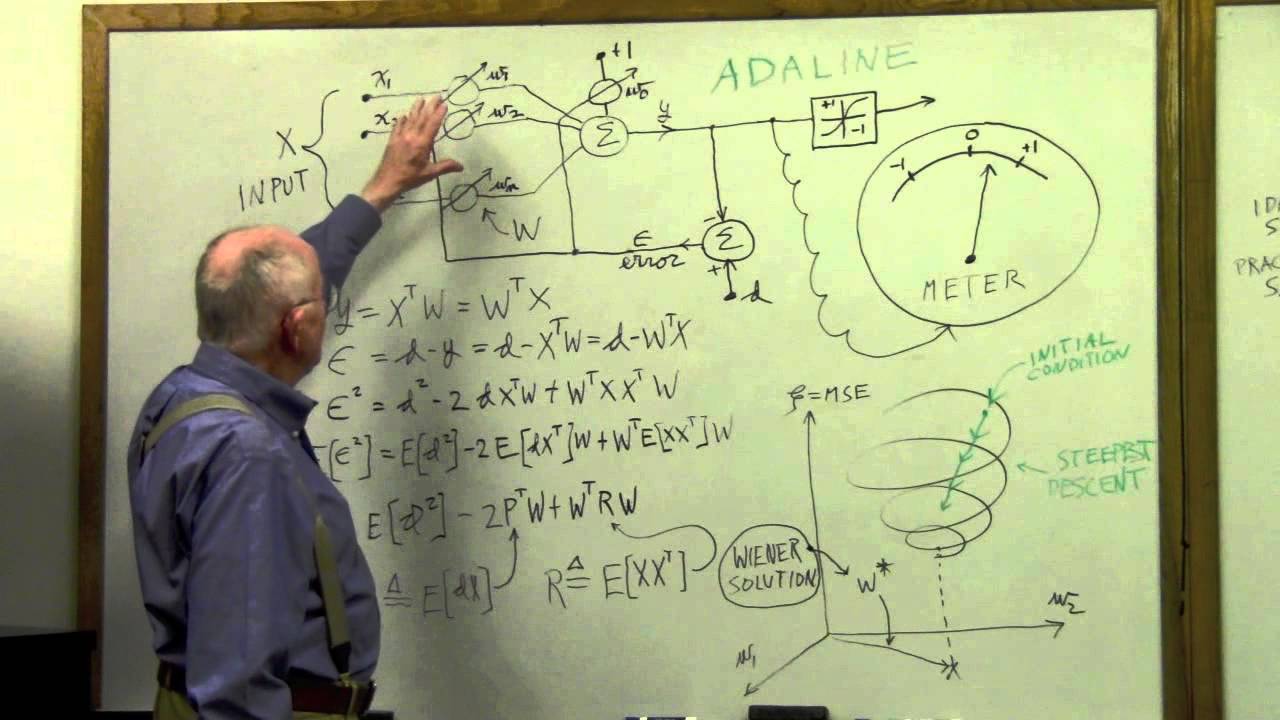 ADALINE
+1
x₁
w₁
w₀
w₂
X
INPUT
wₙ
W
Σ
y
+1
-1
-1
0
+1
METER
-
Σ
+
ϵ
error
d
y = XᵀW = WᵀX
ϵ = d - y = d - XᵀW = d - WᵀX
ϵ² = d² - 2dXᵀW + WᵀXXᵀW
[ϵ²] = E[d²] - 2E[dXᵀ]W + WᵀE[XXᵀ]W
E[d²] - 2PᵀW + WᵀRW
≜ E[dX]
R ≜ E[XXᵀ]
ξ = MSE
INITIAL
CONDITION
STEEPEST
DESCENT
WIENER
SOLUTION
W*
w₂
w₁